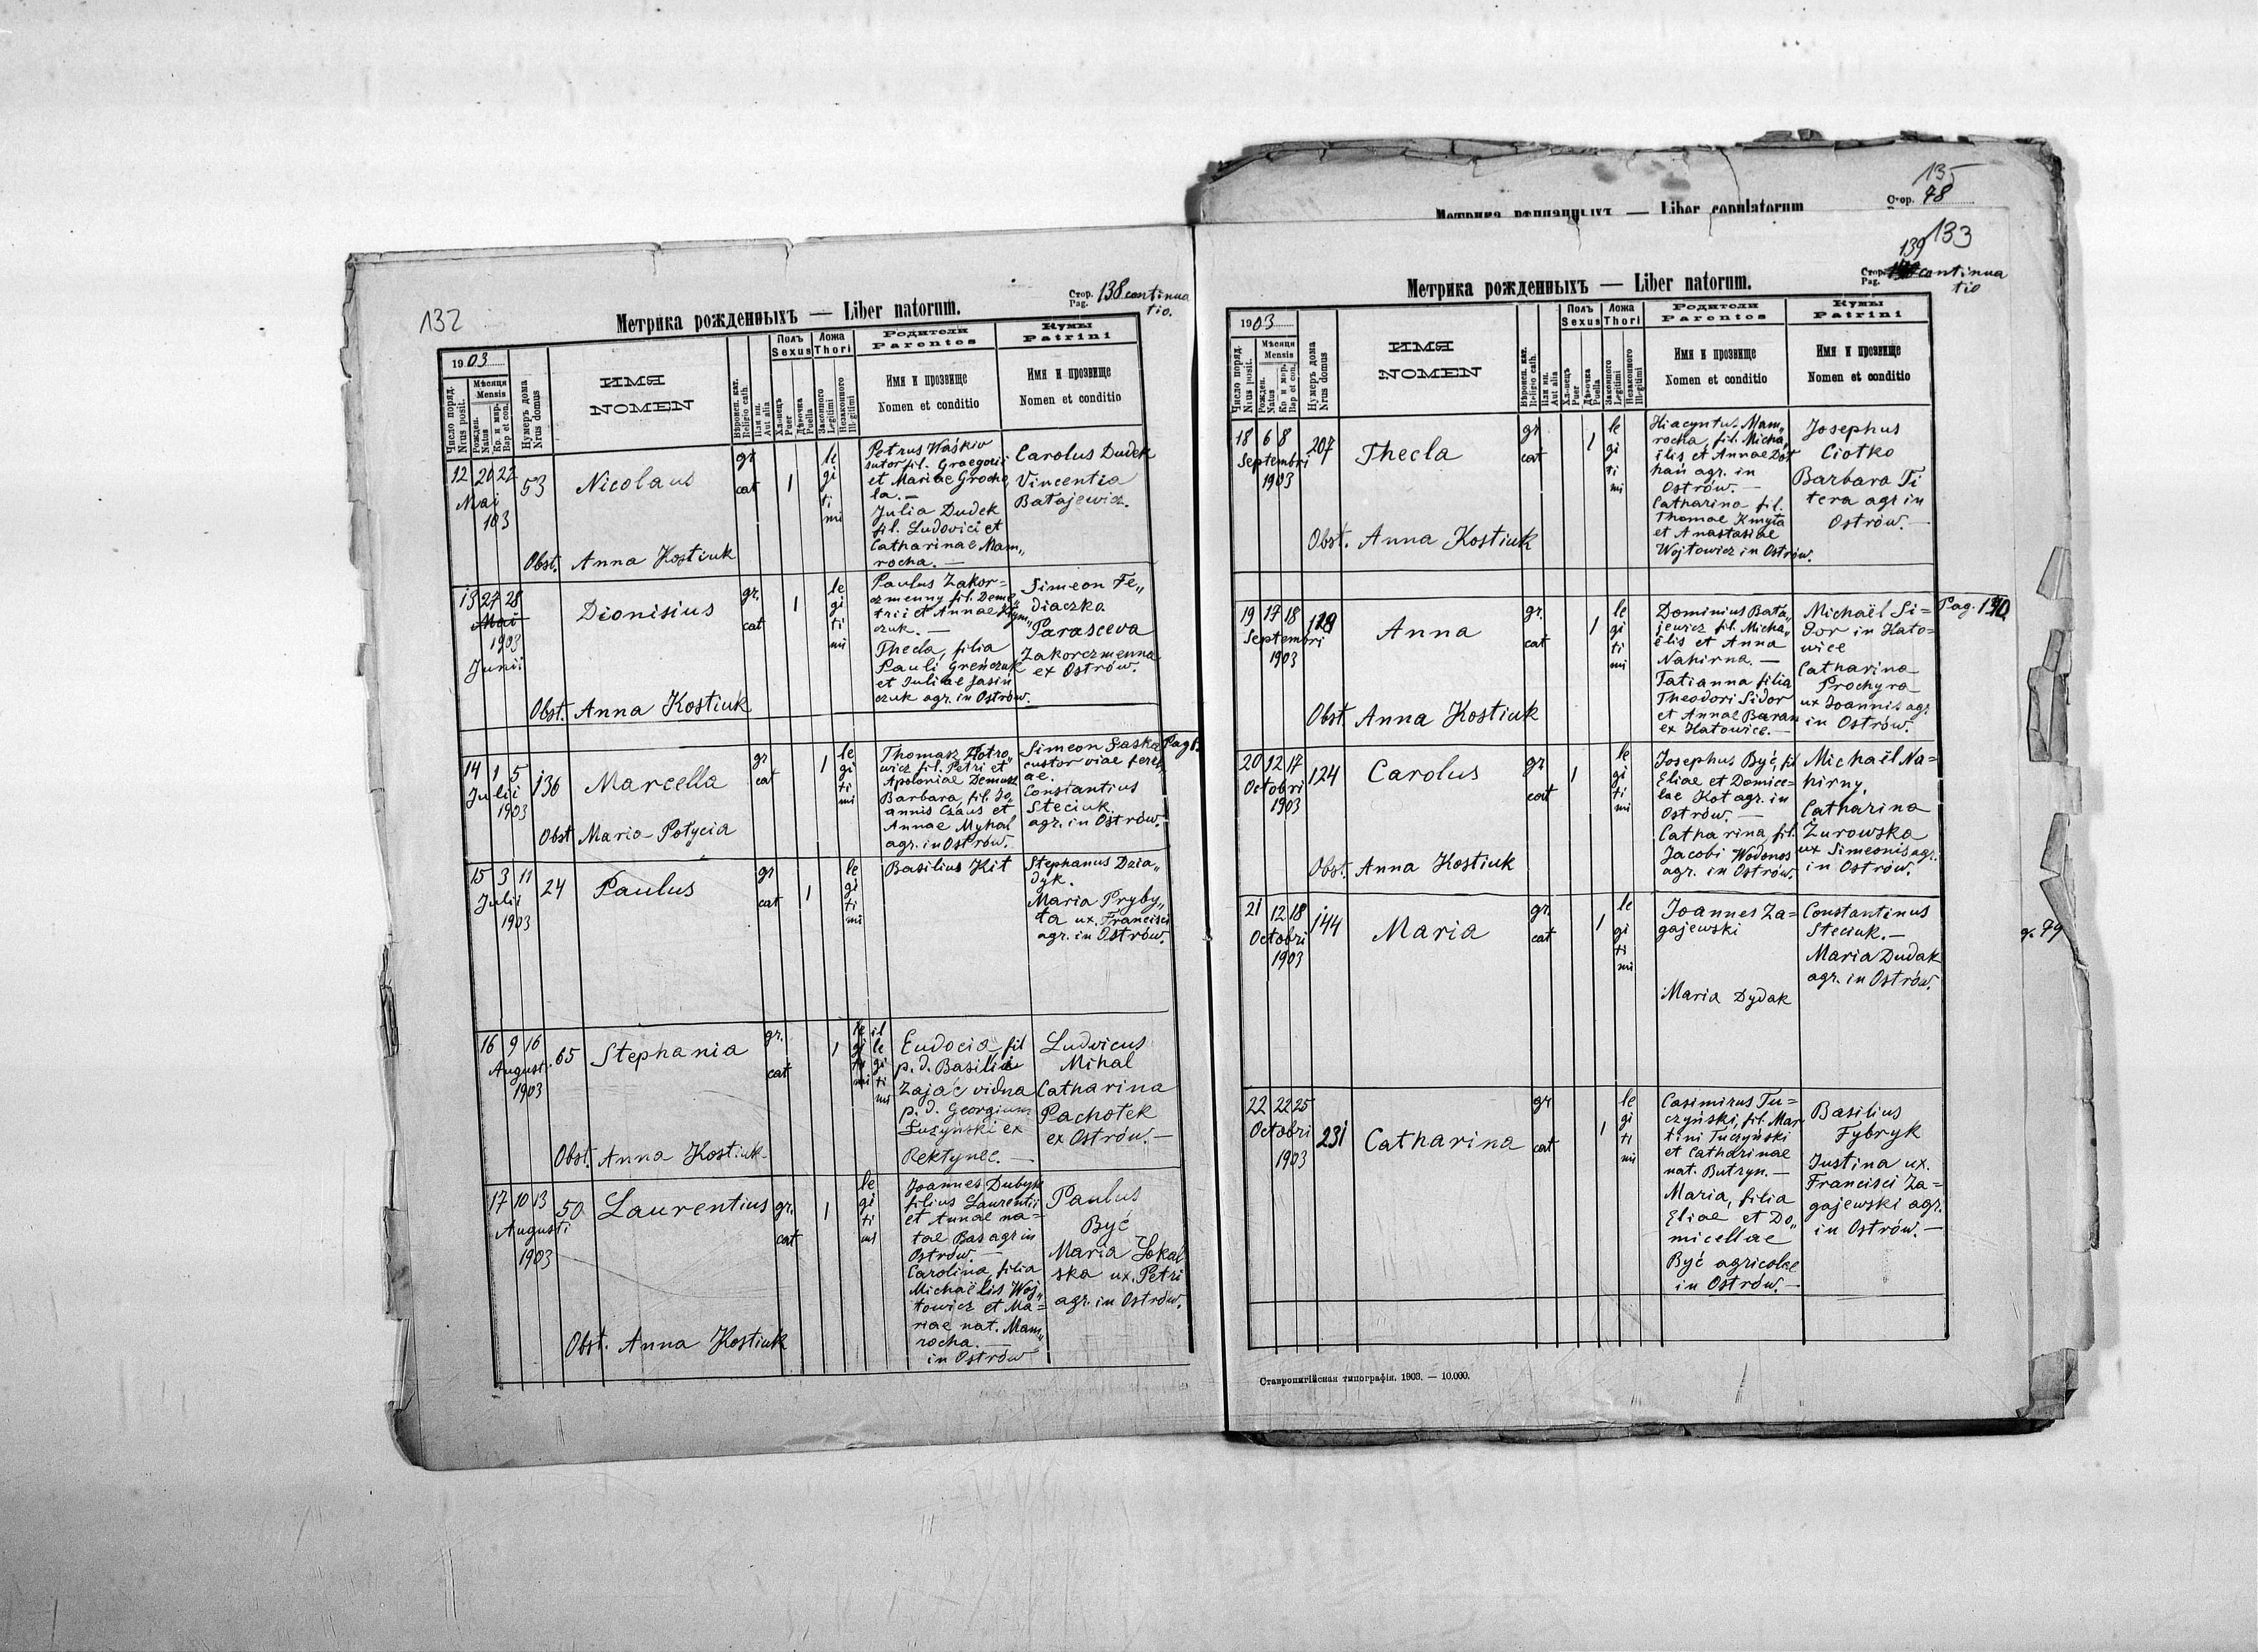 132
Метрика рожденныхъ — Liber natorum.
Стор. Pag. 138 continua
tio.
1903
Число поряд. Nrus posit.
Мѣсяця Mensis
Рожден. Natus
Кр. и мѵр. Bap et con.
Нумеръ дома Nrus domus
ИМЯ
NOMEN
Вѣроисп. кат. Religio cath.
Или ин. Aut alia
Полъ Sexus
Хлопецъ Puer
Дѣвочка Puella
Ложа Thori
Законного Legitimi
Незаконного Illegitimi
Родители
Parentes
Имя и прозвище
Nomen et conditio
Кумы
Patrini
Имя и прозвище
Nomen et conditio
12 20 22
Mai
103
53
Nicolaus
gr
cat
1
le
gi
ti
mi
Petrus Waśkiw
sutor fil. Graegorii
et Mariae Grocho
la. —
Julia Dudek
fil. Ludovici et
Catharinae Mam„
rocha. —
Carolus Dudek
Vincentia
Batajewicz.
Obst. Anna Kostiuk
13 27 28
Mai
1903
Junii
Dionisius
gr.
cat
1
le
gi
ti
mi
Paulus Zakor=
czmenny fil. Deme„
trii et Annae Hrym„
czuk. —
Thecla, filia
Pauli Greńczuk
et Juliae Jasiń
czuk agr. in Ostrów.
Simeon Fe„
diaczko
Parasceva
Zakorczmenna
ex Ostrów.
Obst. Anna Kostiuk
14 1 5
Julii
1903
136
Marcella
gr
cat
1
le
gi
ti
mi
wicz fil. Petri et
Barbara, fil. Jo„
annis Czaus et
Annae Myhal
agr. in Ostrów.
Simeon Łaska
custor viae ferre
ae.
Constantius
Steciuk
agr. in Ostrów.
Obst Maria Potycia
15 3 11
Julii
1903
24
Paulus
gr
cat
1
le
gi
ti
mi
Basilius Kit
Stephanus Dzia„
dyk.
Maria Pryby„
ta ux. Francisci
agr. in Ostrów.
16 9 16
Augusti
1903
65
Stephania
gr.
cat
1
le
gi
ti
mi
il
le
gi
ti
mi
Eudocia fil
p. d. Basilii
Zając vidua
p. d. Georgium
Łuszyński ex
Rektyńce. —
Ludvicus
Mihal
Catharina
Pachołek
ex Ostrów. —
Obst. Anna Kostiuk
17 10 13
Augusti
1903
50
Laurentius
gr.
cat
1
le
gi
ti
mi
Joannes Dubyk
filius Laurentii
et Annae na=
tae Bas agr in
Ostrów. —
Carolina filia
Michaëlis Woj„
towicz et Ma=
riae nat. Mam„
rocha. —
in Ostrów
Paulus
Być
Maria Sokal
ska ux. Petri
agr. in Ostrów.
Obst. Anna Kostiuk
135
Стор. 78
Метрика вѣнчанныхъ — Liber copulatorum
133
139
Метрика рожденныхъ — Liber natorum.
Стор. Pag. continua
tio
1903
Число поряд. Nrus posit.
Мѣсяця Mensis
Рожден. Natus
Кр. и мѵр. Bap et con.
Нумеръ дома Nrus domus
ИМЯ
NOMEN
Вѣроисп. кат. Religio cath.
Или ин. Aut alia
Полъ Sexus
Хлопецъ Puer
Дѣвочка Puella
Ложа Thori
Законного Legitimi
Незаконного Illegitimi
Родители
Parentes
Имя и прозвище
Nomen et conditio
Кумы
Patrini
Имя и прозвище
Nomen et conditio
18 6 8
Septembri
1903
207
Thecla
gr
cat
1
le
gi
ti
mi
Hiacyntus Mam„
rocha, fil. Micha„
ilis et Annae Doł
hań agr. in
Ostrów. —
Catharina fil.
Thomae Kmyta
et Anastasiae
Wojtowicz in Ostrów.
Josephus
Ciotko
Barbara Ti
tera agr in
Ostrów. —
Obst. Anna Kostiuk
19 17 18
Septembri
1903
Anna
gr.
cat
1
le
gi
ti
mi
Dominius Bata„
jewicz fil. Micha„
ëlis et Anna
Nahirna. —
Tatianna filia
Theodori Sidor
et Annae Baran
ex Hatowice. —
Michaël Si=
dor in Hato=
wice
Catharina
Prochyra
ux Joannis agr.
in Ostrów.
Obst Anna Kostiuk
20 12 17
Octobri
1903
124
Carolus
gr
cat
1
le
gi
ti
mi
Josephus Być, fil
Eliae et Domice=
lae Kot agr. in
Ostrów. —
Catharina, fil.
Jacobi Wodonos
agr. in Ostrów.
Michaël Na=
hirny.
Catharina
Żurowska
ux Simeonis agr.
in Ostrów.
Obst. Anna Kostiuk
21 12 18
Octobri
1903
144
Maria
gr.
cat
1
le
gi
ti
mi
Joannes Za=
gajewski
Maria Dydak
Constantinus
Steciuk. —
Maria Dudak
agr. in Ostrów.
22 22 25
Octobri
1903
231
Catharina
gr
cat
1
le
gi
ti
mi
Casimirus Tu=
czyński, fil. Mar
tini Tuczyński
et Catharinae
nat. Butryn. —
Maria, filia
Eliae et Do„
micellae
Być agricolae
in Ostrów. —
Basilius
Fybryk
Justina ux.
Francisci Za=
gajewski agr.
in Ostrów. —
Ставропигійская типографія. 1903. — 10.000.